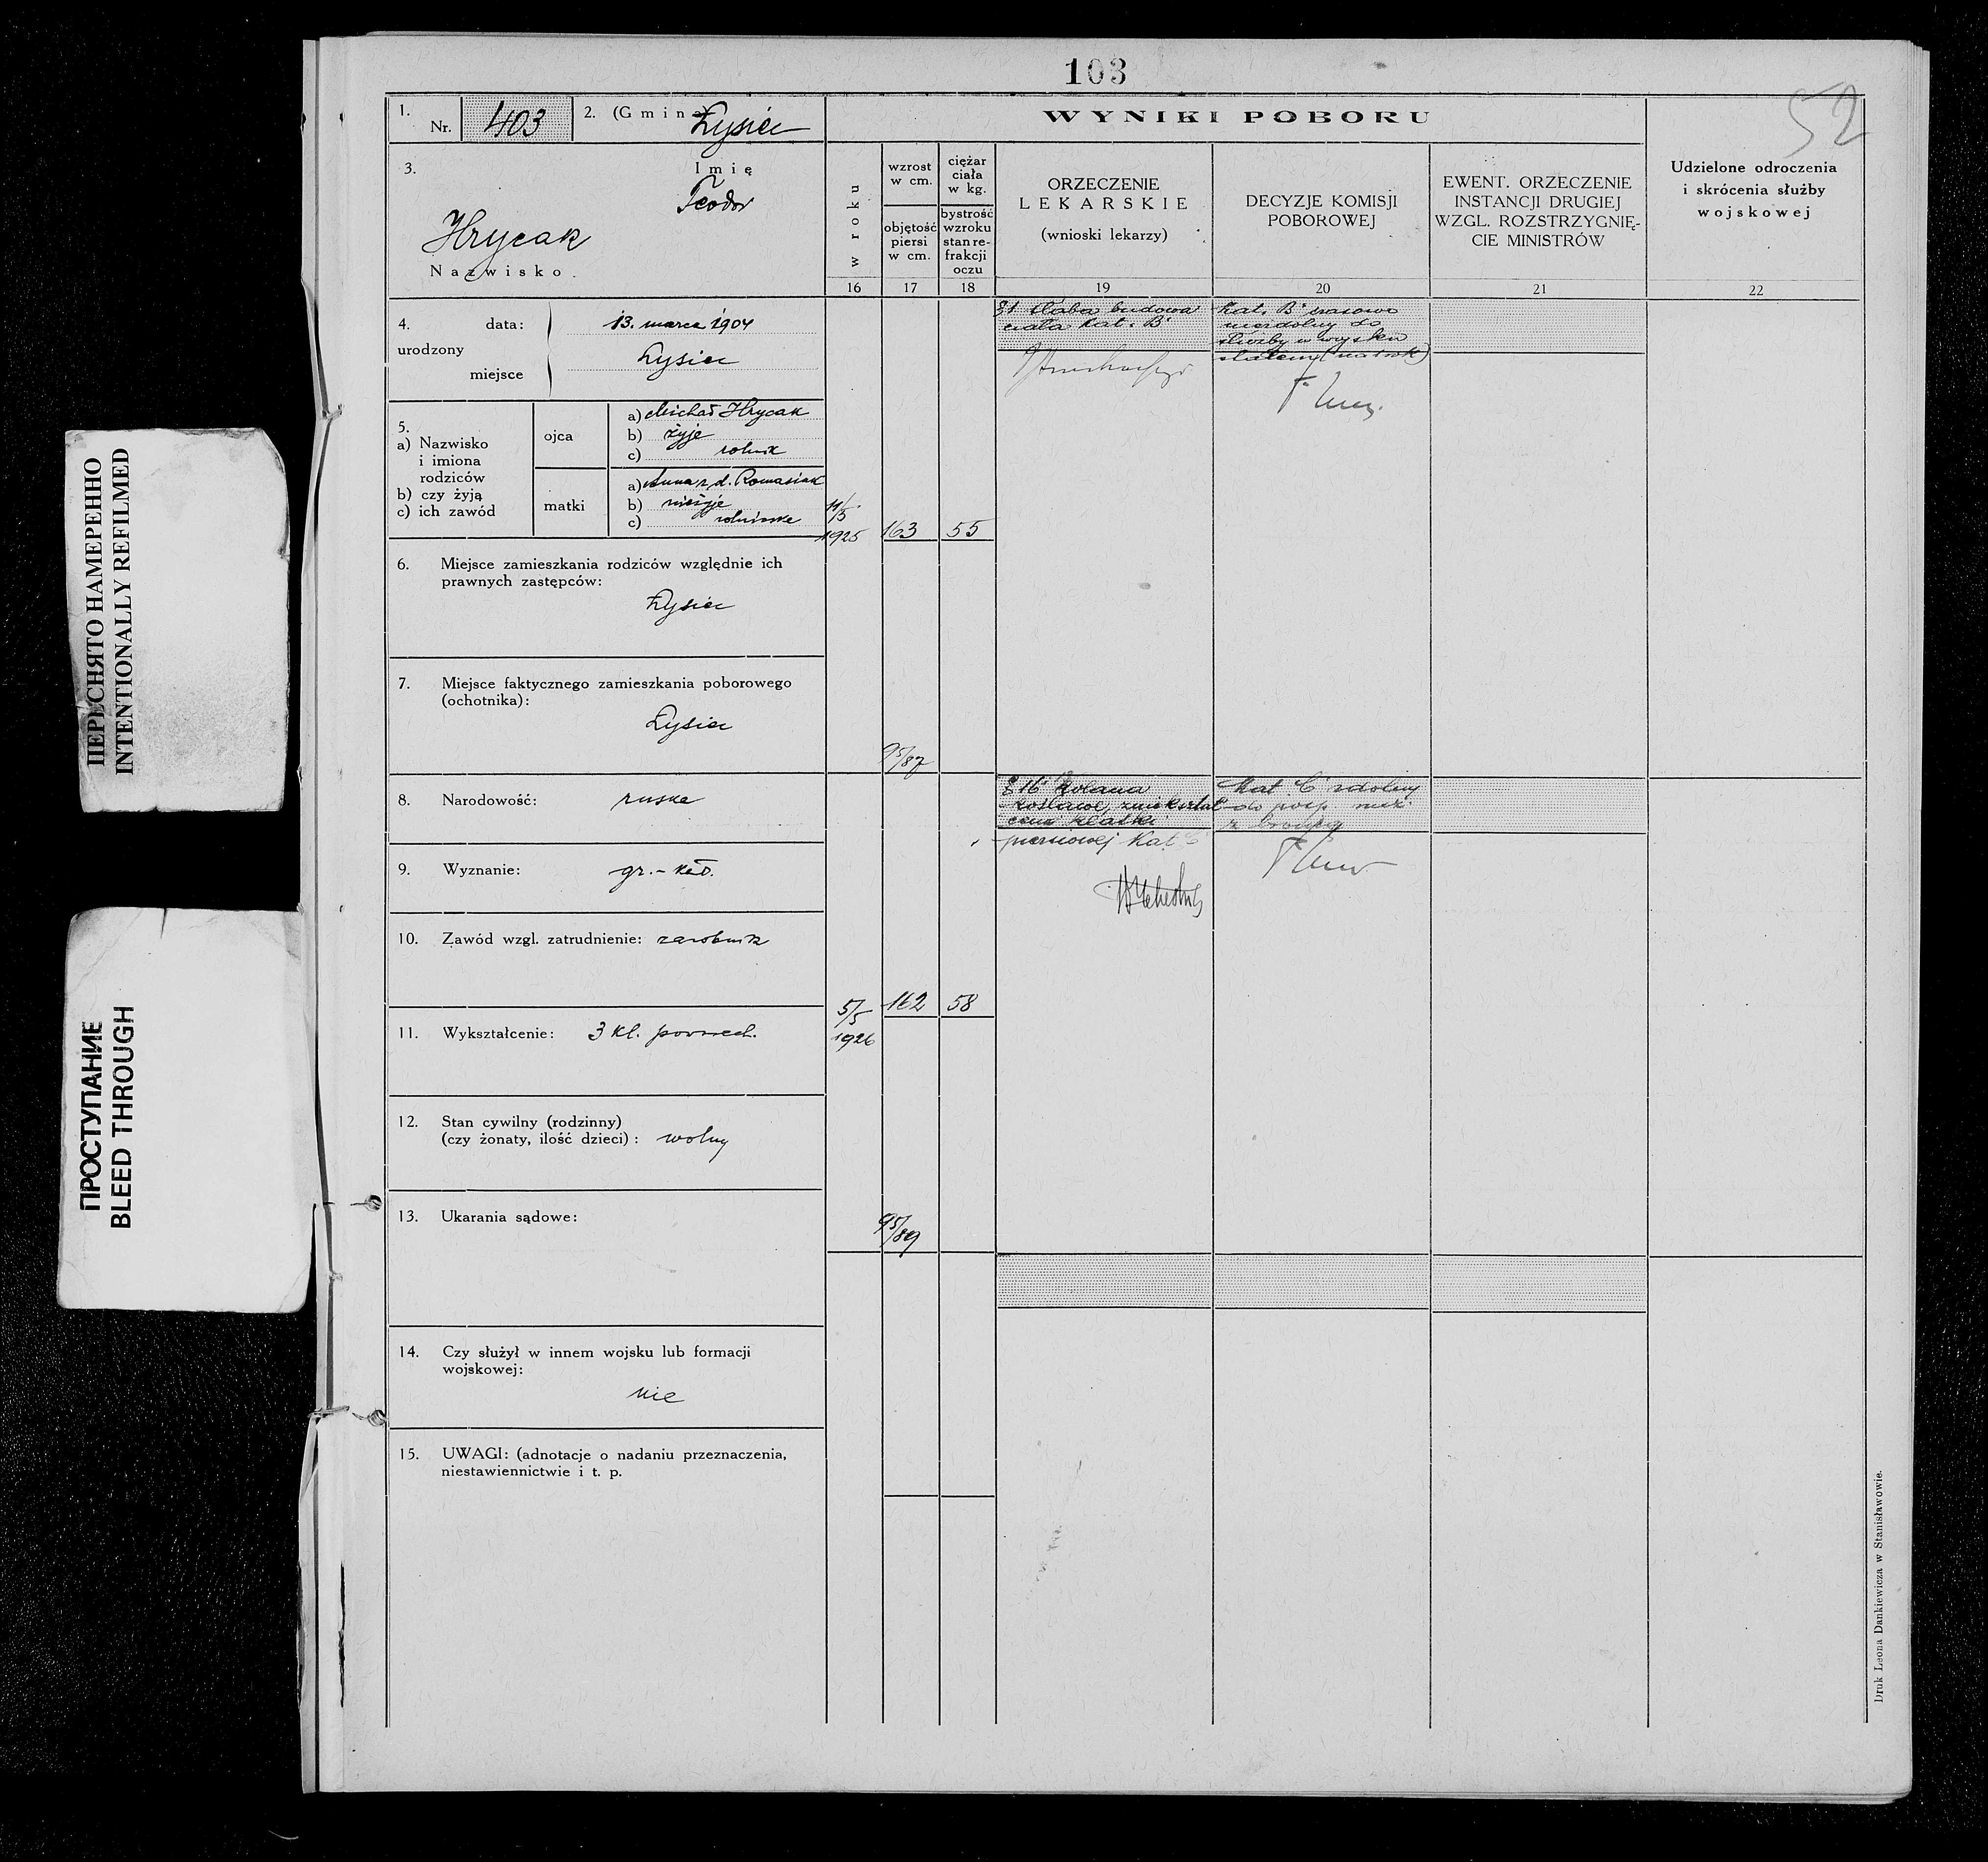 103
52
1.
Nr. 403
2. (Gmina) Łysiec
WYNIKI POBORU
3.
Imię
Teodor
Hrycak
Nazwisko.
w roku
wzrost
w cm.
objętość
piersi
w cm.
ciężar
ciała
w kg.
bystrość
wzroku
stan re-
frakcji
oczu
ORZECZENIE
LEKARSKIE
(wnioski lekarzy)
DECYZJE KOMISJI
POBOROWEJ
EWENT. ORZECZENIE
INSTANCJI DRUGIEJ
WZGL. ROZSTRZYGNIĘ-
CIE MINISTRÓW
Udzielone odroczenia
i skrócenia służby
wojskowej
16
17
18
19
20
21
22
4.
urodzony
data: 13. marca 1904
miejsce Łysiec
5.
a) Nazwisko
i imiona
rodziców
b) czy żyją
c) ich zawód
ojca
a) Michał Hrycak
b) żyje
c) rolnik
matki
a) Anna z d. Romasiak
b) nieżyje
c)
6. Miejsce zamieszkania rodziców względnie ich
prawnych zastępców:
Łysiec
7. Miejsce faktycznego zamieszkania poborowego
(ochotnika):
Łysiec
8. Narodowość: ruska
9. Wyznanie: gr.-kat.
10. Zawód wzgl. zatrudnienie: zarobnik
11. Wykształcenie: 3 kl. powszech.
12. Stan cywilny (rodzinny)
(czy żonaty, ilość dzieci): wolny
13. Ukarania sądowe:
14. Czy służył w innem wojsku lub formacji
wojskowej:
nie
15. UWAGI: (adnotacje o nadaniu przeznaczenia,
niestawiennictwie i t. p.
11/5
1925
163
55
95/87
słaba budowa
ciała kat. B
Kat. B czasowo
niezdolny do
służby w wojsku
stałem (na rok)
5/5
1926
162
58
95/89
§ 16 Kolana
koślawe, zniekształ-
cenie klatki
piersiowej Kat C
Kat C zdolny
do posp. rusz.
z bronią
Druk Leona Dankiewicza w Stanisławowie.
ПЕРЕСНЯТО НАМЕРЕННО
INTENTIONALLY REFILMED
ПРОСТУПАНИЕ
BLEED THROUGH